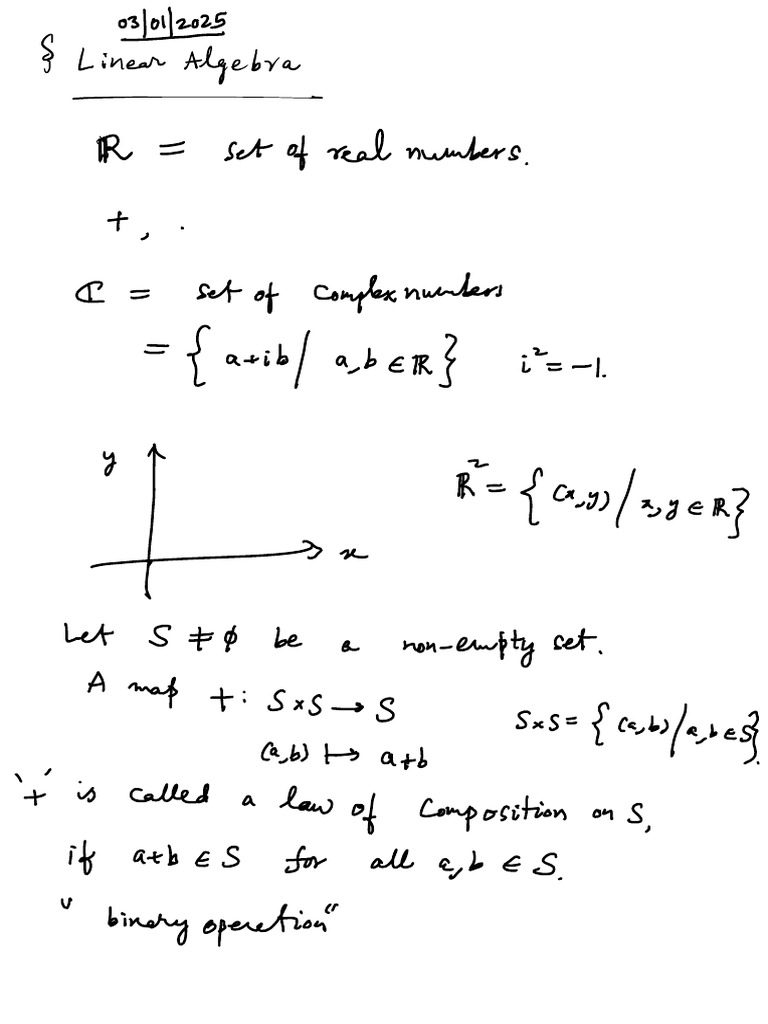 03/01/2025
§ Linear Algebra
ℝ = set of real numbers.
+, ·
ℂ = set of complex numbers
= { a+ib / a,b ∈ ℝ } i² = -1.
y
ℝ² = { (x,y) / x,y ∈ ℝ }
x
Let S ≠ ϕ be a non-empty set.
A map +: S×S → S
S×S = { (a,b) / a,b ∈ S }.
(a,b) ↦ a+b
'+' is called a law of composition on S,
if a+b ∈ S for all a,b ∈ S.
"binary operation"